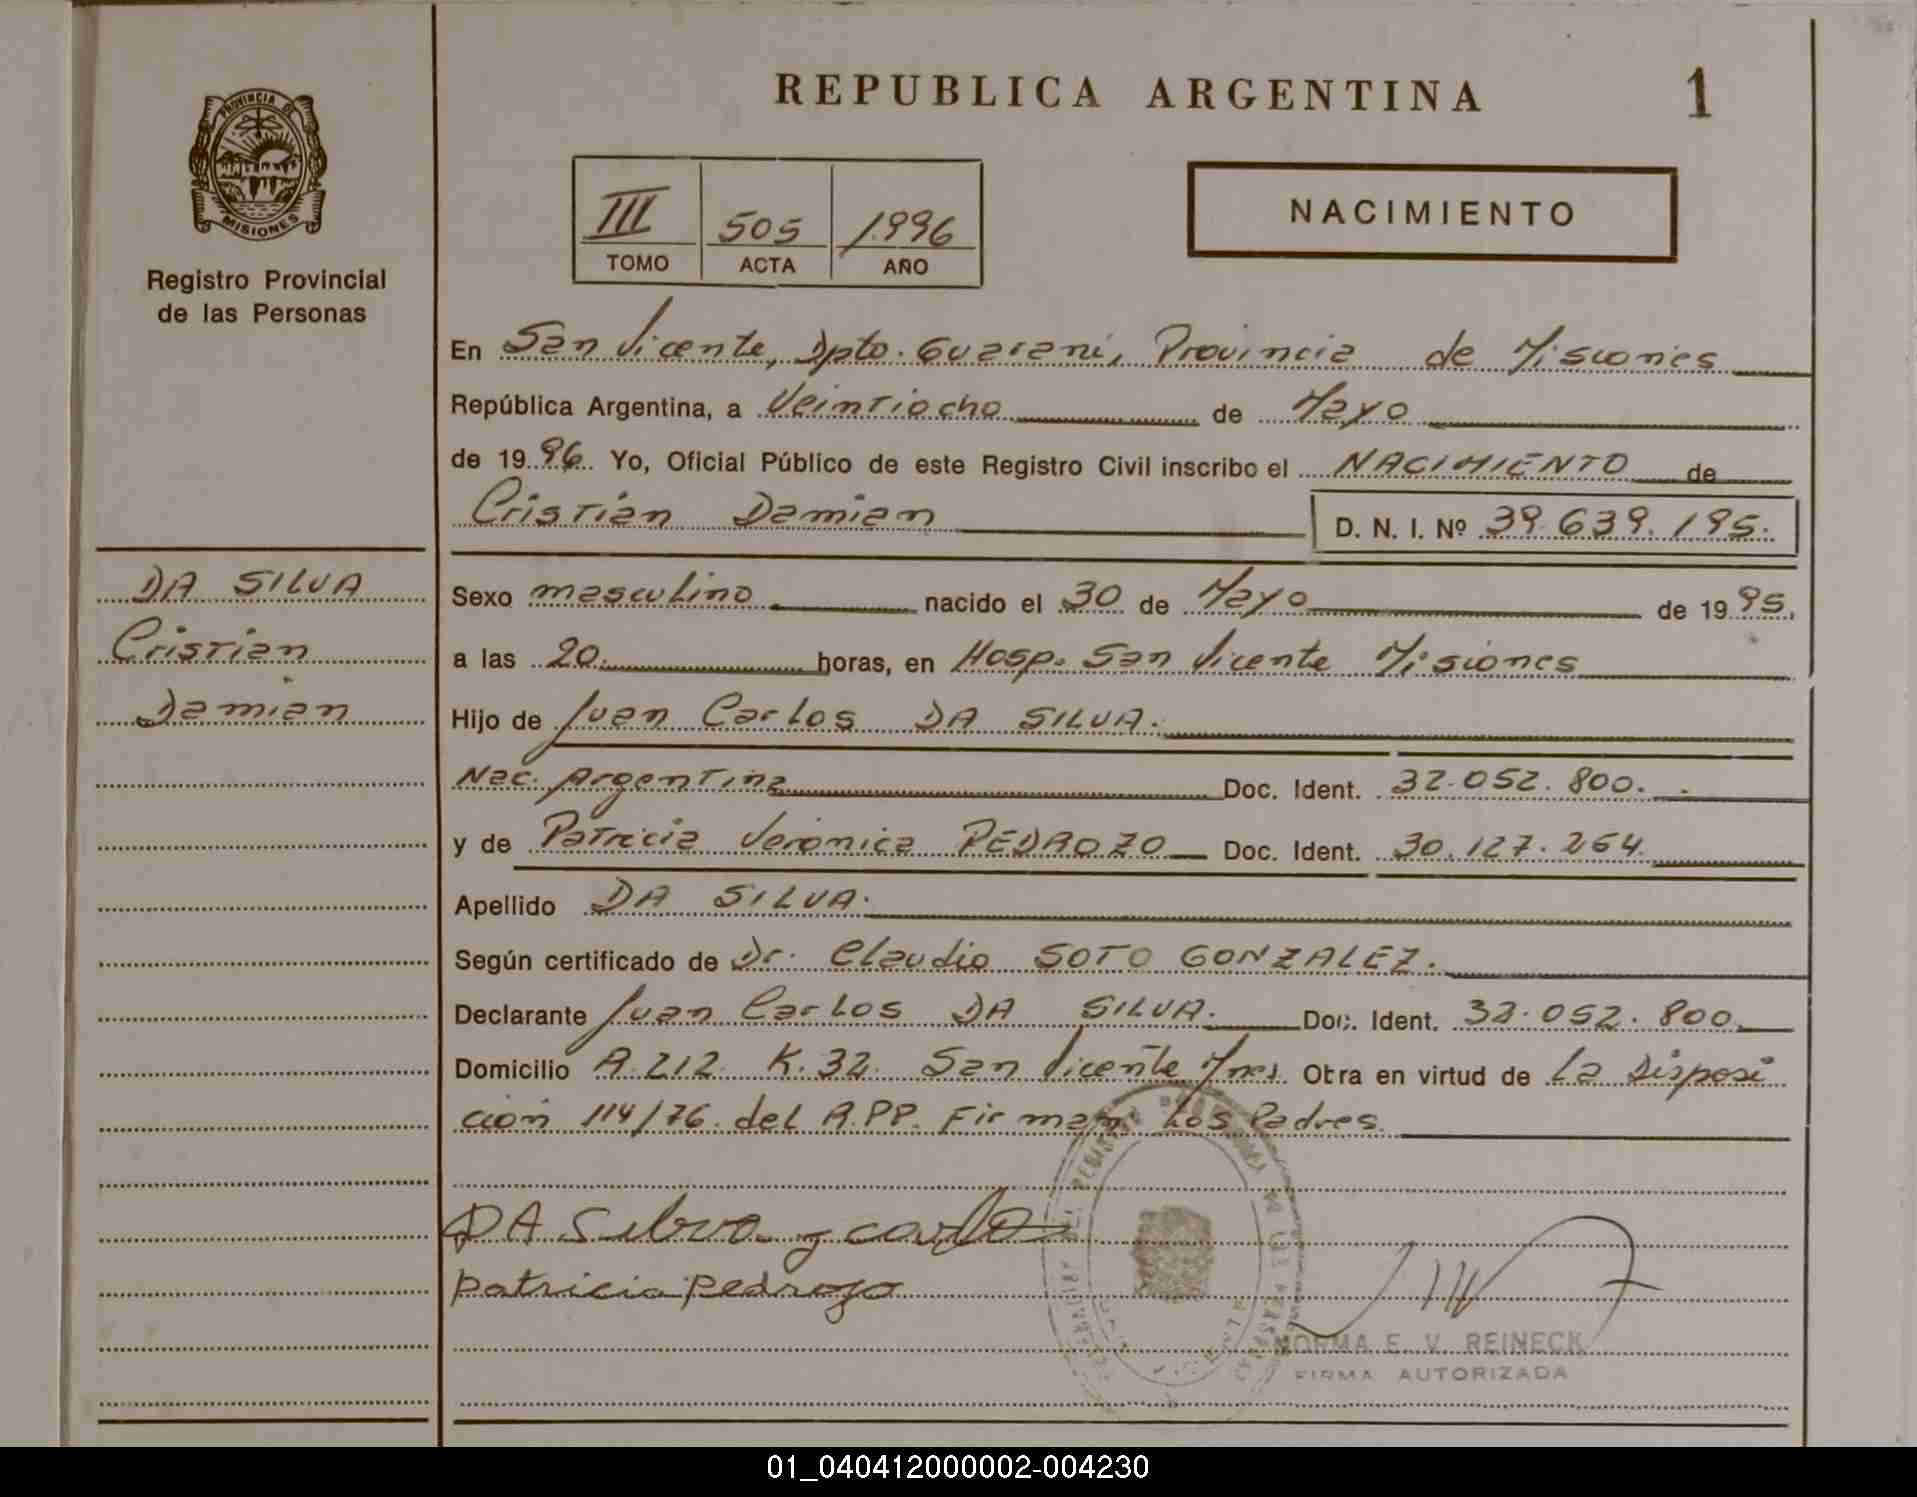 PROVINCIA DE
MISIONES
Registro Provincial
de las Personas
DA SILVA
Cristian
Damian
REPUBLICA ARGENTINA
1
III 505 1996
TOMO ACTA AÑO
NACIMIENTO
En San Vicente, Dpto. Guarani, Provincia de Misiones
República Argentina, a Veintiocho de Mayo
de 1996. Yo, Oficial Público de este Registro Civil inscribo el NACIMIENTO de
Cristian Damian D. N. I. Nº 39.639.195.
Sexo masculino nacido el 30 de Mayo de 1995.
a las 20. horas, en Hosp. San Vicente Misiones
Hijo de Juan Carlos DA SILVA.
Nac. Argentina Doc. Ident. 32.052.800.
y de Patricia Veronica PEDROZO Doc. Ident. 30.127.264
Apellido DA SILVA.
Según certificado de Dr. Claudio SOTO GONZALEZ.
Declarante Juan Carlos DA SILVA. Doc. Ident. 32.052.800
Domicilio A.212 K.32. San Vicente Mnes. Otra en virtud de La Disposi
ción 114/76. del R.PP. Firman Los Padres.
DA Silva y carlo
patricia pedrozo
NORMA E. V. REINECK
FIRMA AUTORIZADA
01_040412000002-004230